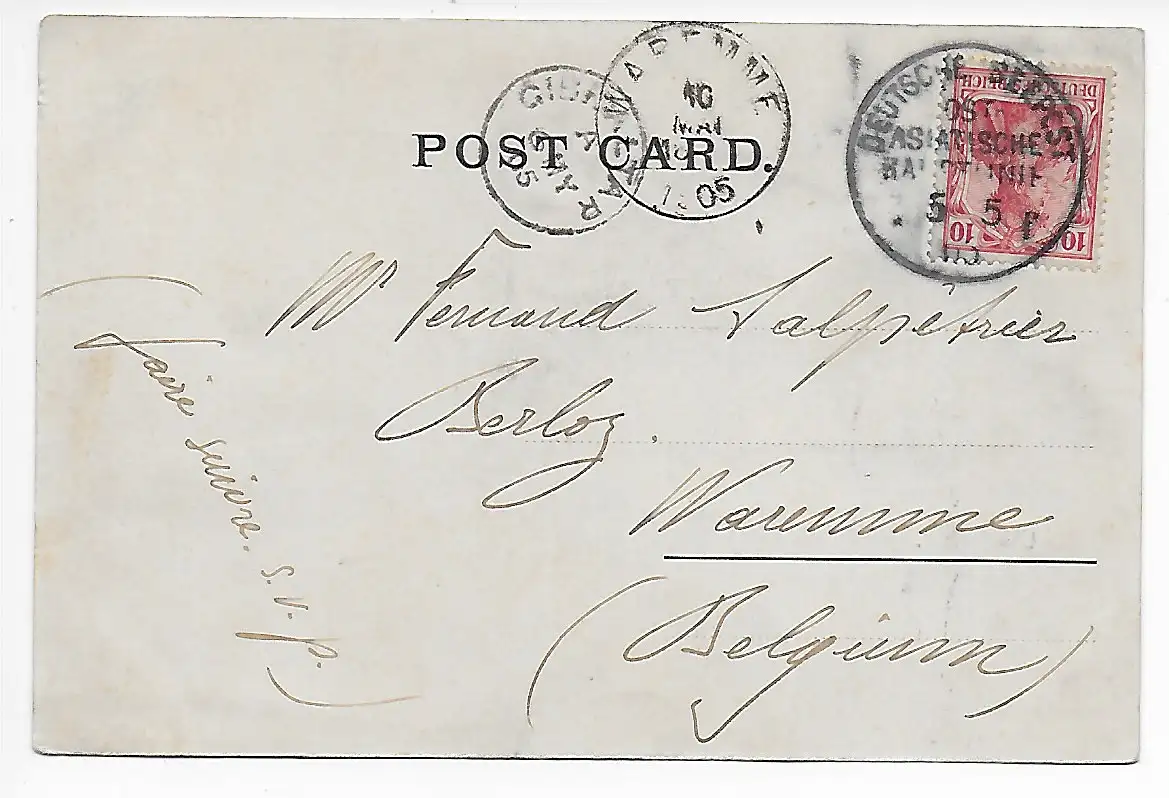 POST CARD.
WAREMME
10
MAI
1905
GIBRALTAR
A
MY
05
DEUTSCHE SEEPOST
OST-
ASIATISCHE
HAUPTLINIE
5 5
DEUTSCHES REICH
10 10
Mr Fernand Salpétrier
Berloz.
Waremme
(Belgium)
(faire suivre. S.V.P.)